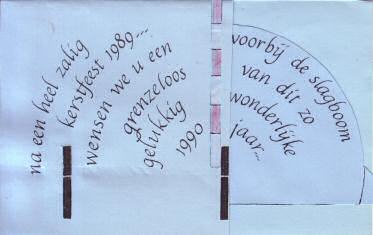 na een heel zalig
kerstfeest 1989...
wensen we u een
grenzeloos
gelukkig
1990
voorbij de slagboom
van dit zo
wonderlijke
jaar...